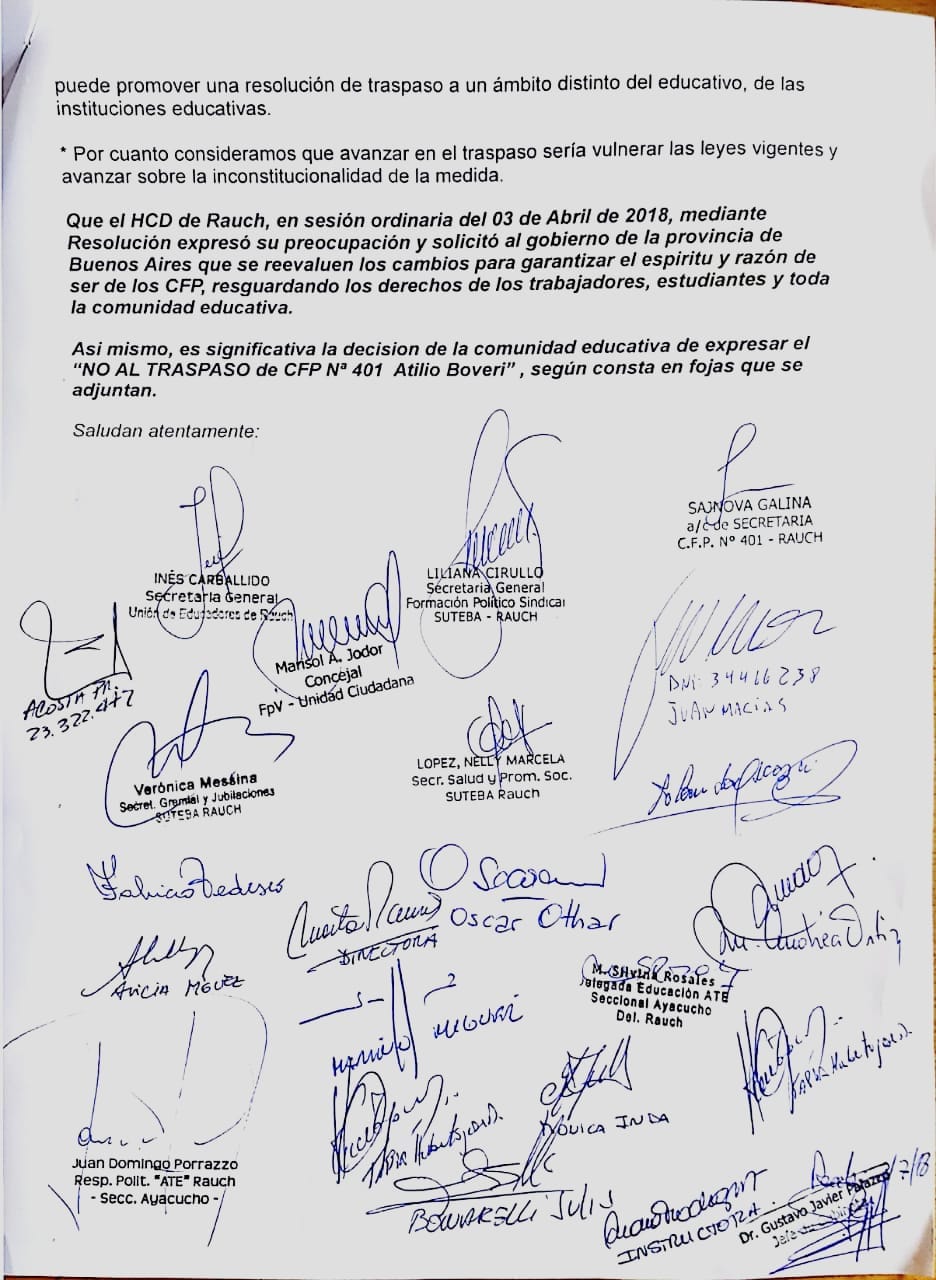 puede promover una resolución de traspaso a un ámbito distinto del educativo, de las
instituciones educativas.
* Por cuanto consideramos que avanzar en el traspaso sería vulnerar las leyes vigentes y
avanzar sobre la inconstitucionalidad de la medida.
Que el HCD de Rauch, en sesión ordinaria del 03 de Abril de 2018, mediante
Resolución expresó su preocupación y solicitó al gobierno de la provincia de
Buenos Aires que se reevaluen los cambios para garantizar el espiritu y razón de
ser de los CFP, resguardando los derechos de los trabajadores, estudiantes y toda
la comunidad educativa.
Asi mismo, es significativa la decision de la comunidad educativa de expresar el
“NO AL TRASPASO de CFP Nª 401 Atilio Boveri” , según consta en fojas que se
adjuntan.
Saludan atentamente:
SAJNOVA GALINA
a/c de SECRETARIA
C.F.P. Nº 401 - RAUCH
INÉS CARBALLIDO
Secretaria General
Unión de Educadores de Rauch
LILIANA CIRULLO
Secretaria General
Formación Político Sindical
SUTEBA - RAUCH
Marisol A. Jodor
Concejal
FpV - Unidad Ciudadana
ACOSTA M.
23.322.417
DNI: 34416238
JUAN MACIAS
Verónica Messina
Secret. Gremial y Jubilaciones
SUTEBA RAUCH
LOPEZ, NELLY MARCELA
Secr. Salud y Prom. Soc.
SUTEBA Rauch
DIRECTORA
Oscar Othar
Andrea Ortiz
ALICIA MIGUEZ
M. Silvina Rosales
Delegada Educación ATE
Seccional Ayacucho
Del. Rauch
MÓNICA INDA
Juan Domingo Porrazzo
Resp. Polit. "ATE" Rauch
- Secc. Ayacucho -
INSTRUCTORA
Dr. Gustavo Javier